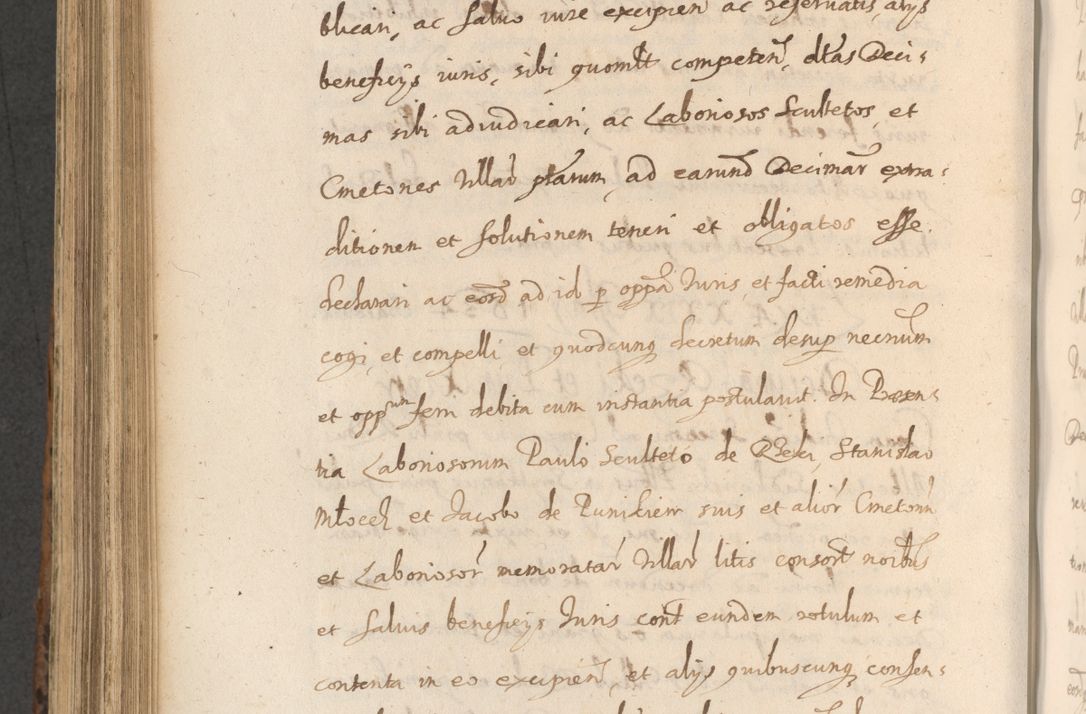 blicari, ac salvo iure excipien ac reservatis, alijs
beneficijs iuris, sibi quomlt competen, dtas Deci-
mas sibi adiudicari, ac Laboriosos Scultetos, et
Cmetones Villar ptarum, ad earund Decimar extra-
ditionem et solutionem teneri et obligatos esse.
declarari ac eosd ad id p oppa Iuris, et facti remedia
cogi, et compelli et quodcunq decretum desup necrium
et oppnum ferri debita cum instantia postulavit. In Præsen-
tia Laboriosorum Paulo Sculteto de Stanislao
Młocek et Iacobo de Punikiew suis et alior Cmetonu
et Laborioser memoratar Villar litis consort noibus
et salvis beneficijs Iuris cont eundem rotulum et
contenta in eo excipien, et alijs quibuscunq consen-